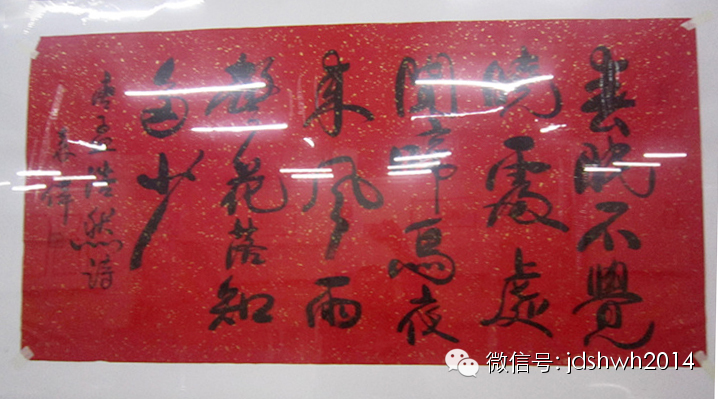 春眠不覺
曉處處
聞啼鳥夜
来風雨
聲花落知
多少
孟浩然詩
微信号: jdshwh2014